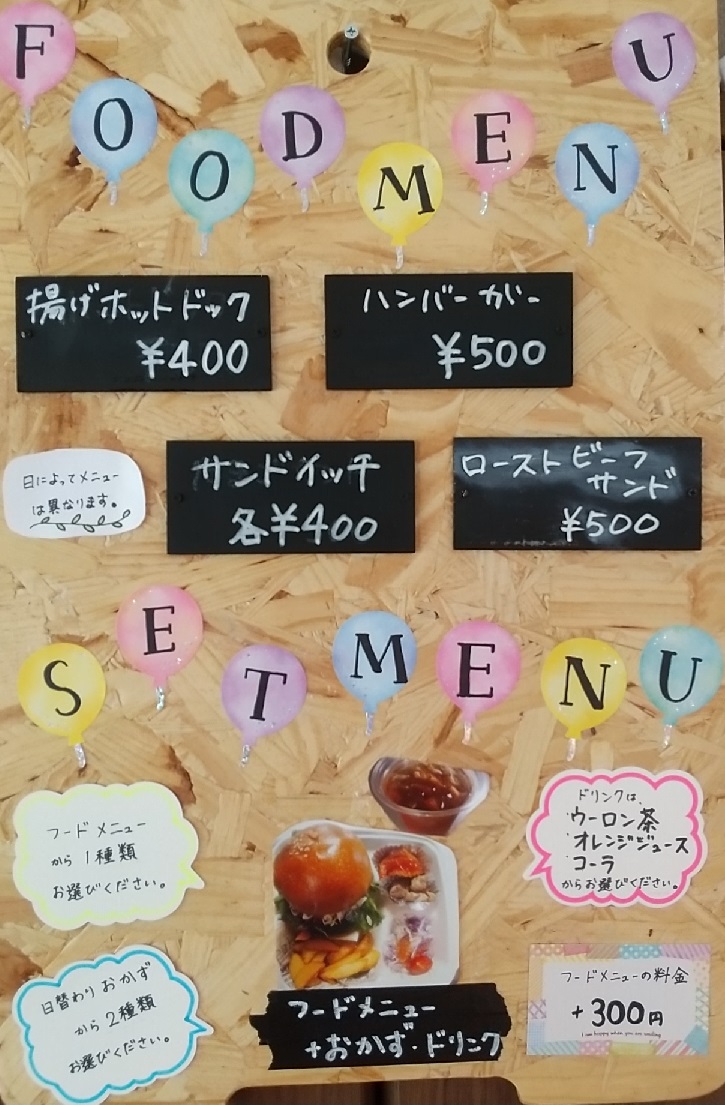 FOOD MENU
揚げホットドック
¥400
ハンバーガー
¥500
日によってメニュー
は異なります。
サンドイッチ
各¥400
ローストビーフ
サンド
¥500
SET MENU
フードメニュー
から1種類
お選びください。
ドリンクは、
・ウーロン茶
・オレンジジュース
・コーラ
からお選びください。
日替わりおかず
から2種類
お選びください。
フードメニュー
+おかず・ドリンク
フードメニューの料金
+300円
I am happy when you are smiling